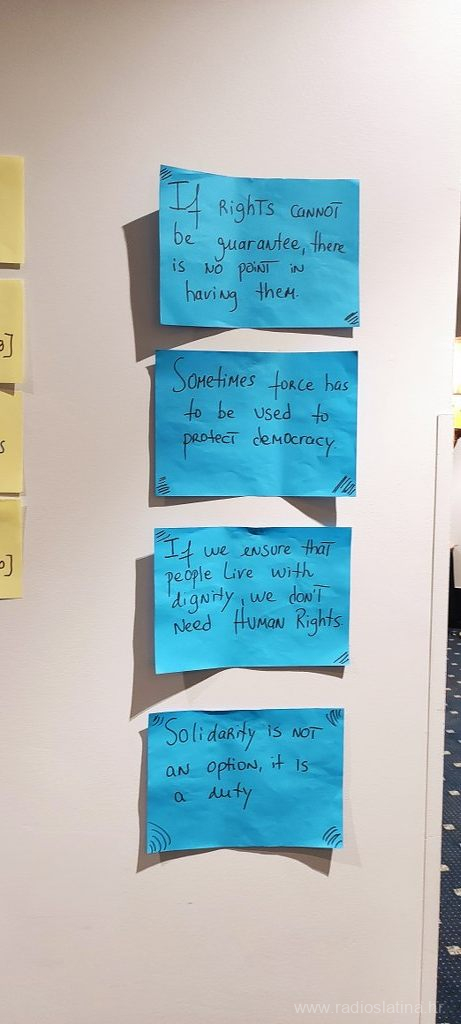 If Rights cannot
be guarantee, there
is no point in
having them.
Sometimes force has
to be used to
protect democracy
If we ensure that
people live with
dignity, we don't
need Human Rights.
Solidarity is not
an option, it is
a duty
www.radioslatina.hr